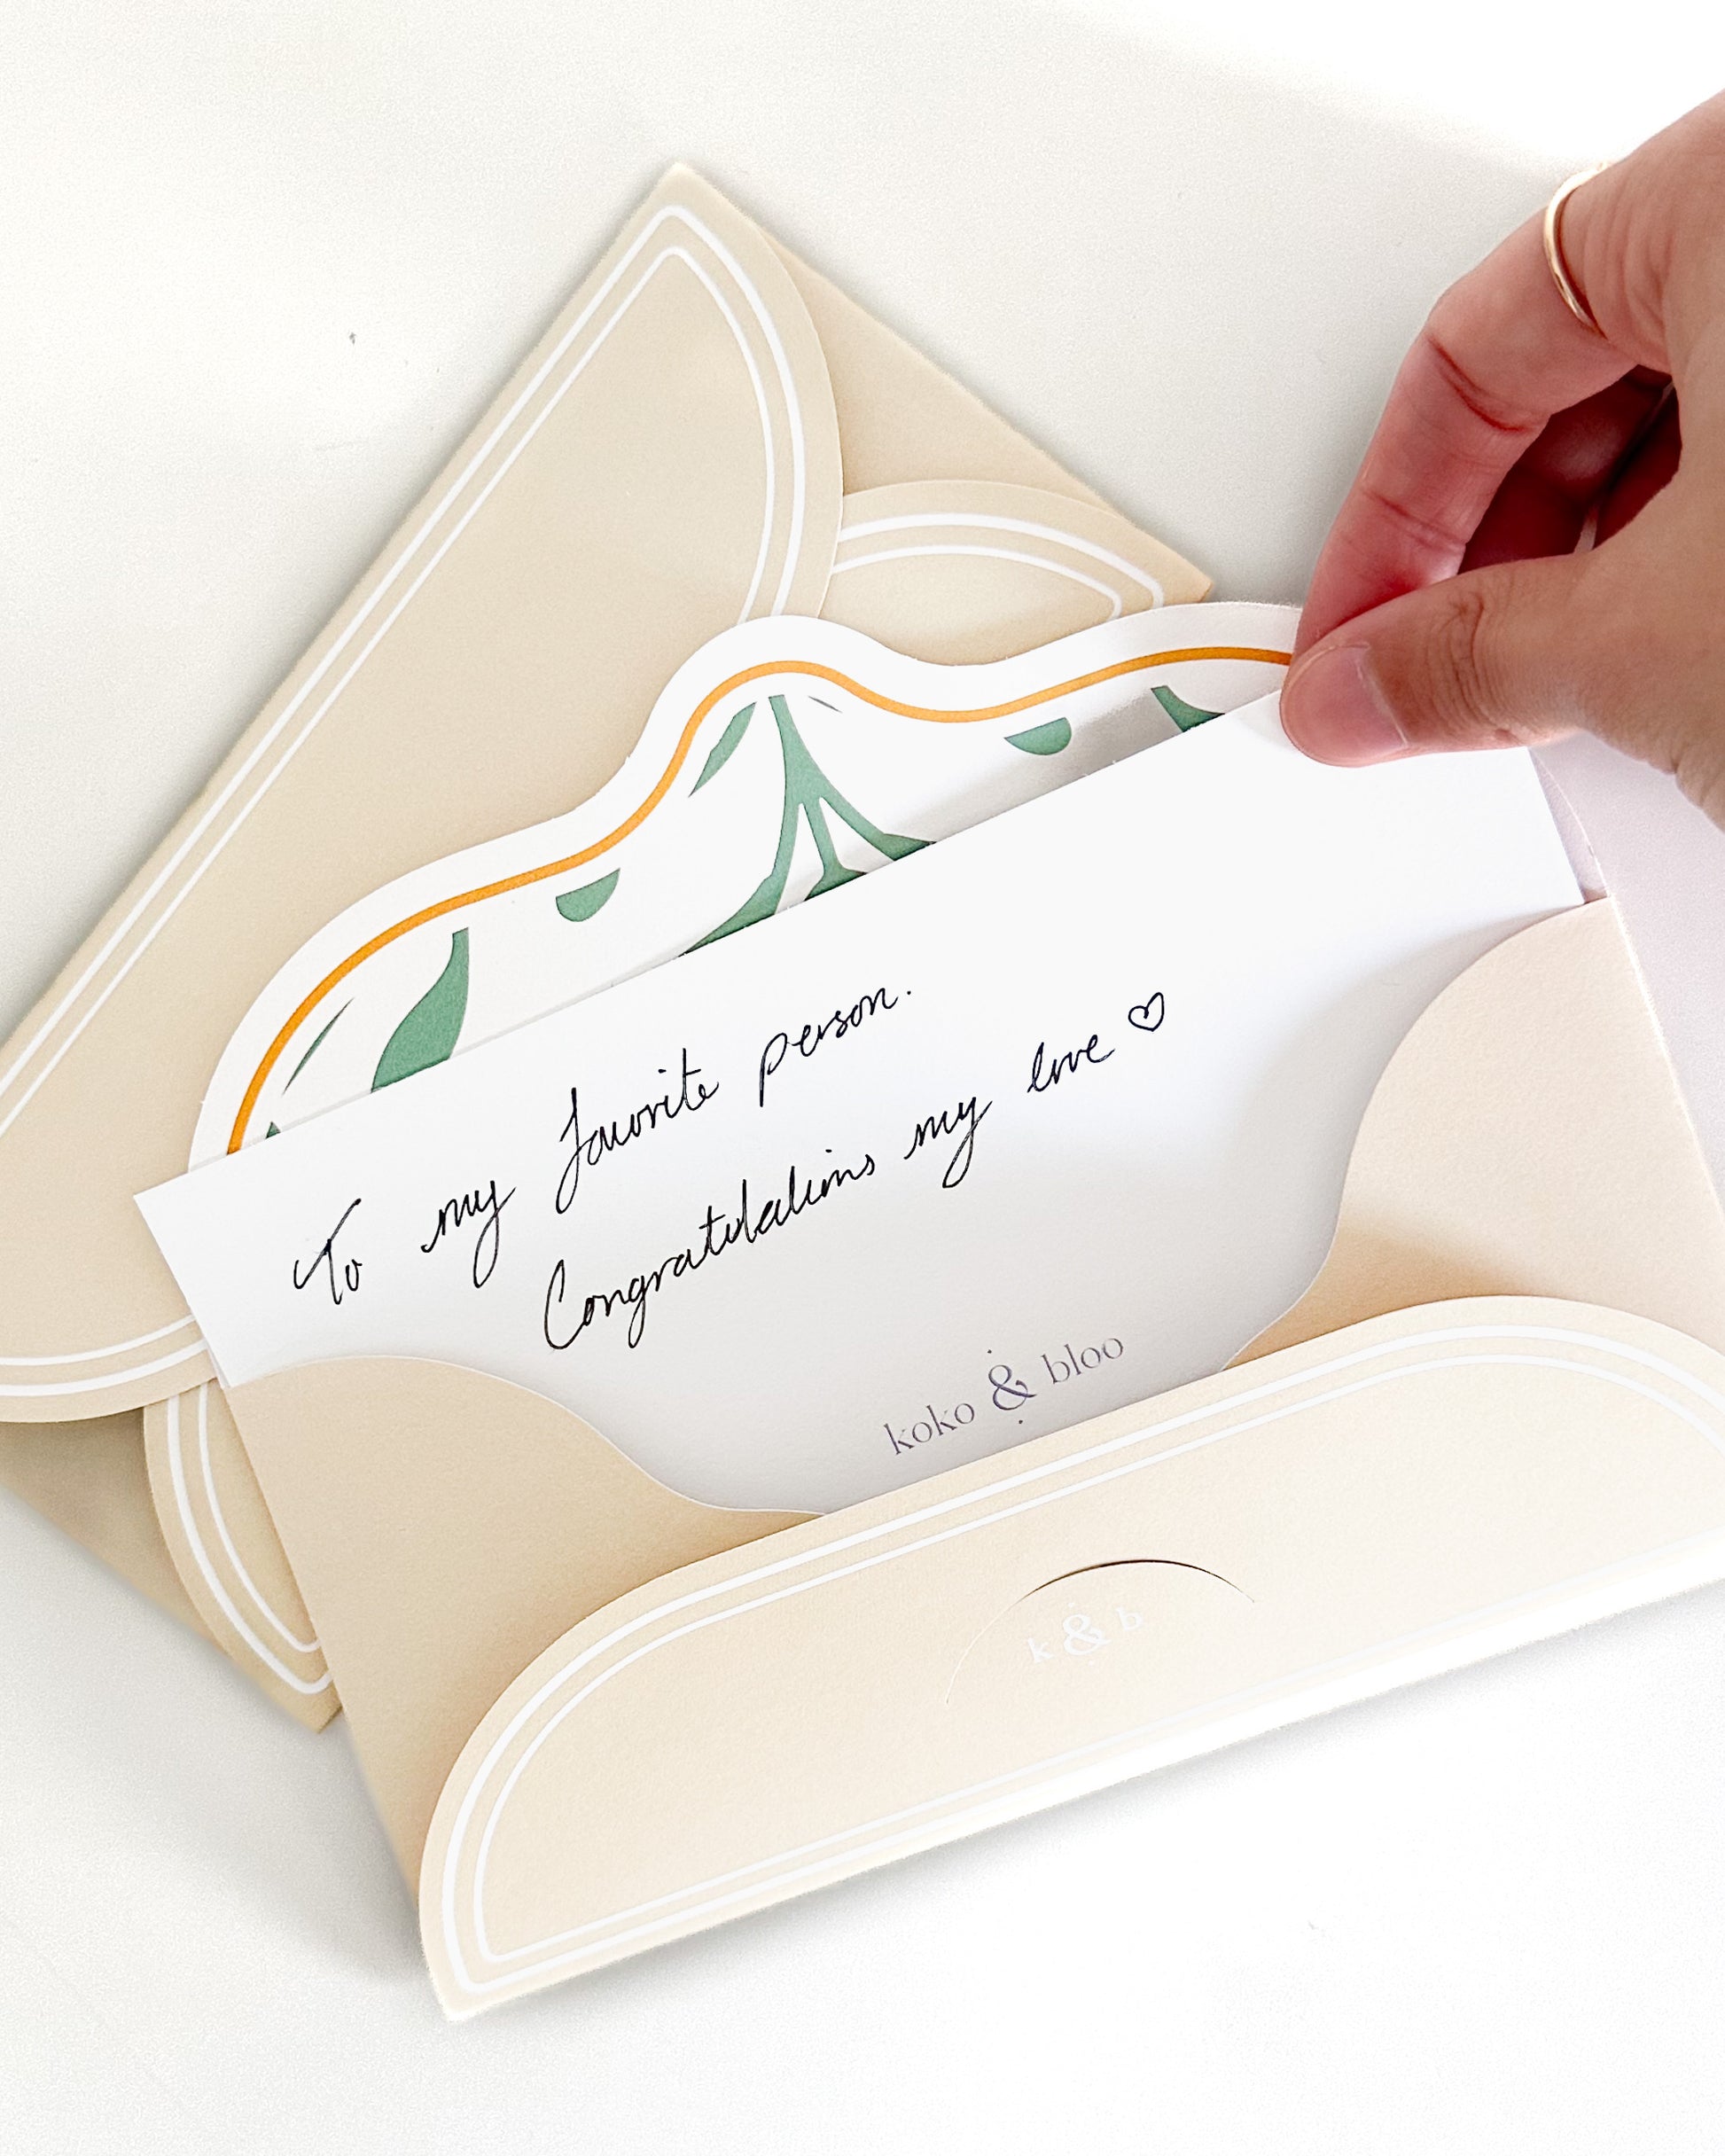 To my favorite person.
Congratulations my love ♡
koko & bloo
k & b